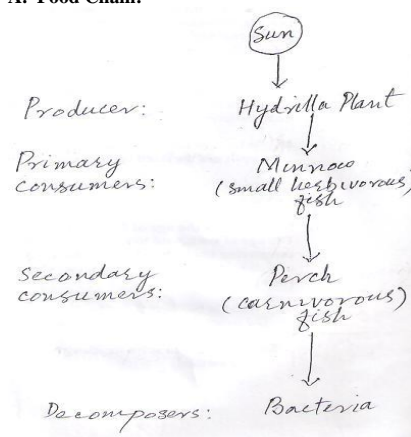 A. Food Chain:
Sun
Producer: Hydrilla Plant
Primary Minnow
consumers: (small herbivorous)
fish
Secondary Perch
consumers: (carnivorous)
fish
Decomposers: Bacteria